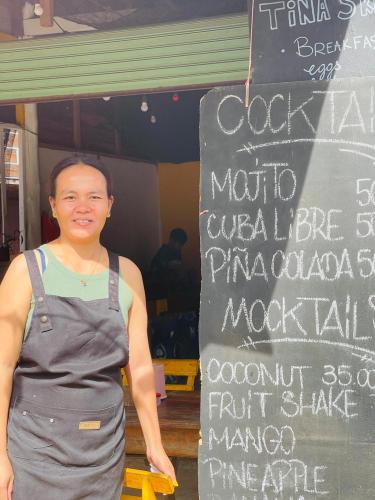 TINA
• BREAKFAS
eggs
COCKTAI
MOJITO 50
CUBA LIBRE 50
PIÑA COLADA 50
MOCKTAILS
COCONUT 35.00
FRUIT SHAKE
MANGO
PINEAPPLE